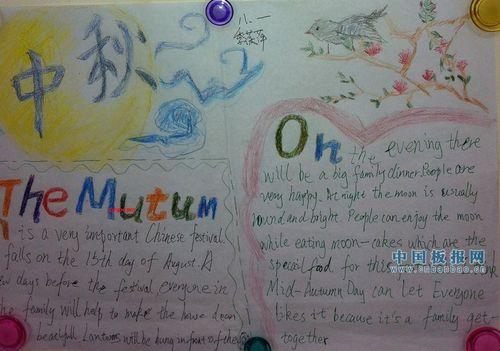 中秋
八.一
The Mutum
is a very important Chinese festival.
falls on the 15th day of August. A
ew days before the festival everyone in
he family will help to make the house clean
beautiful. Lantuns will be hung in front of the
On
the evening there
will be a big family dinner. People are
very happy. At night the moon is usually
round and bright. People can enjoy the moon
while eating moon-cakes which are the
special food for this
Mid-Autumn Day can let Everyone
likes it because it's a family get-
together
中国板报网
www.cnbanbao.cn